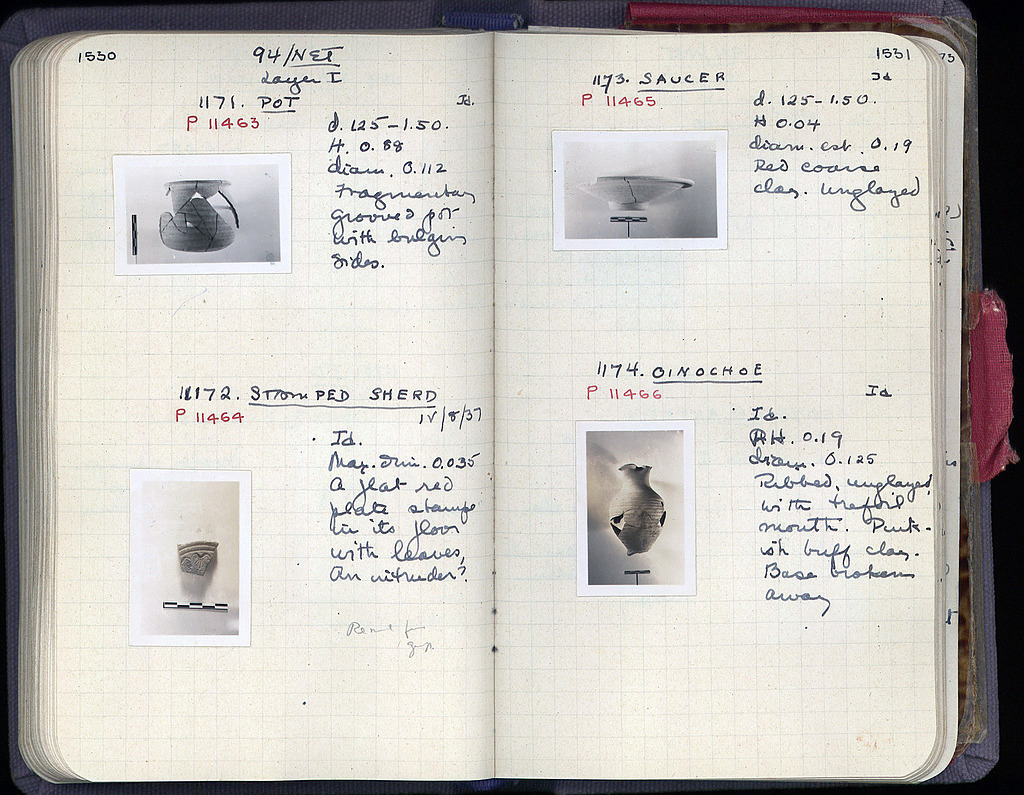 1530
94/NET
Layer I
1171. POT
Id.
P 11463
d. 125-1.50.
H. 0.88
diam. 0.112
Fragmentary
grooved pot
with bulging
sides.
11172. STAMPED SHERD
P 11464
IV/8/37
Id.
Max. dim. 0.035
A flat red
plate stamped
in its floor
with leaves,
An intruder?
1531
1173. SAUCER
Id
P 11465
d. 125-1.50.
H 0.04
diam. est. 0.19
Red coarse
clay. Unglazed
1174. OINOCHOE
P 11466
Id
Id.
P.H. 0.19
diam. 0.125
Ribbed, unglazed,
with trefoil
mouth. Pink-
ish buff clay.
Base broken
away
73